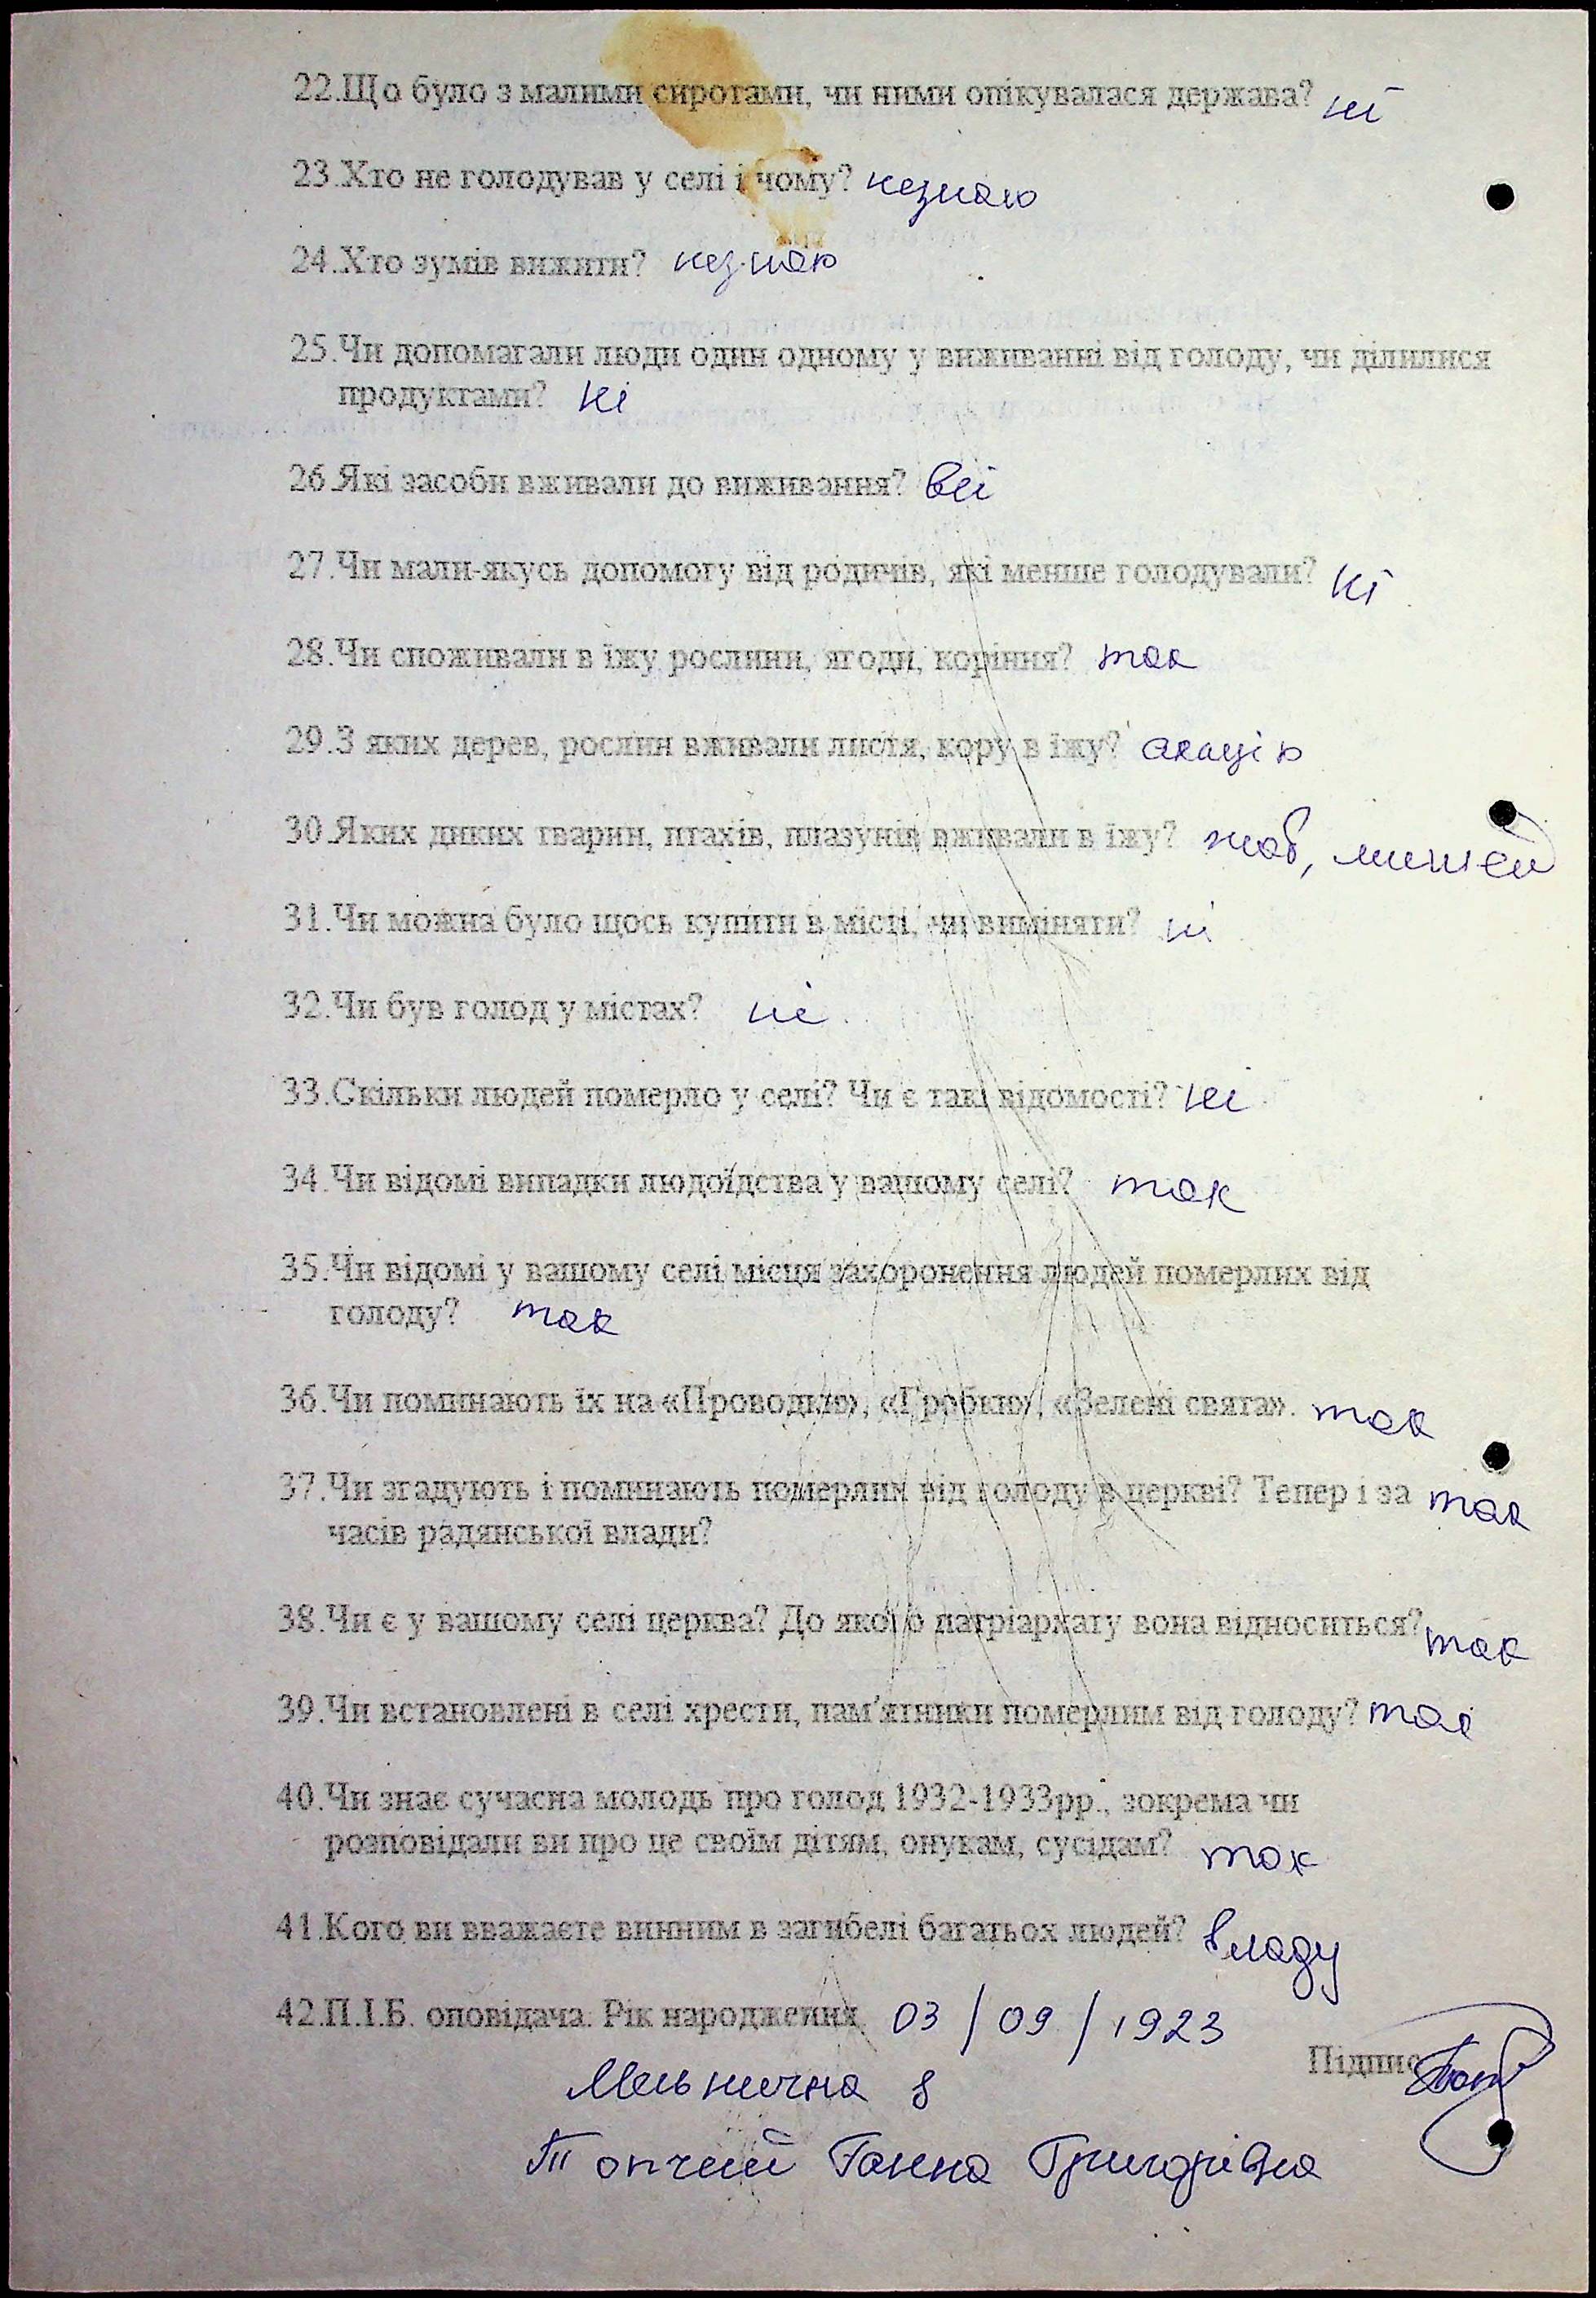 22.Що було з малими сиротами, чи ними опікувалася держава? ні
23.Хто не голодував у селі і чому? незнаю
24.Хто зумів вижити? незнаю
25.Чи допомагали люди один одному у виживанні від голоду, чи ділилися
продуктами? ні
26.Які засоби вживали до виживання? всі
27.Чи мали-якусь допомогу від родичів, які менше голодували? ні
28.Чи споживали в їжу рослини, ягоди, коріння? так
29.З яких дерев, рослин вживали листя, кору в їжу? акацію
30.Яких диких тварин, птахів, плазунів вживали в їжу? жаб, мишей
31.Чи можна було щось купити в місті, чи виміняти? ні
32.Чи був голод у містах? ні
33.Скільки людей померло у селі? Чи є такі відомості? ні
34.Чи відомі випадки людоїдства у вашому селі? так
35.Чи відомі у вашому селі місця захоронення людей померлих від
голоду? так
36.Чи поминають їх на «Проводки», «Гробки», «Зелені свята». так
37.Чи згадують і поминають померлих від голоду в церкві? Тепер і за так
часів радянської влади?
38.Чи є у вашому селі церква? До якого патріархату вона відноситься? так
39.Чи встановлені в селі хрести, пам'ятники померлим від голоду? так
40.Чи знає сучасна молодь про голод 1932-1933рр., зокрема чи
розповідали ви про це своїм дітям, онукам, сусідам? так
41.Кого ви вважаєте винним в загибелі багатьох людей? владу
42.П.І.Б. оповідача. Рік народження 03/09/1923
Підпис
Мельнична 8
Топчий Ганна Григорівна